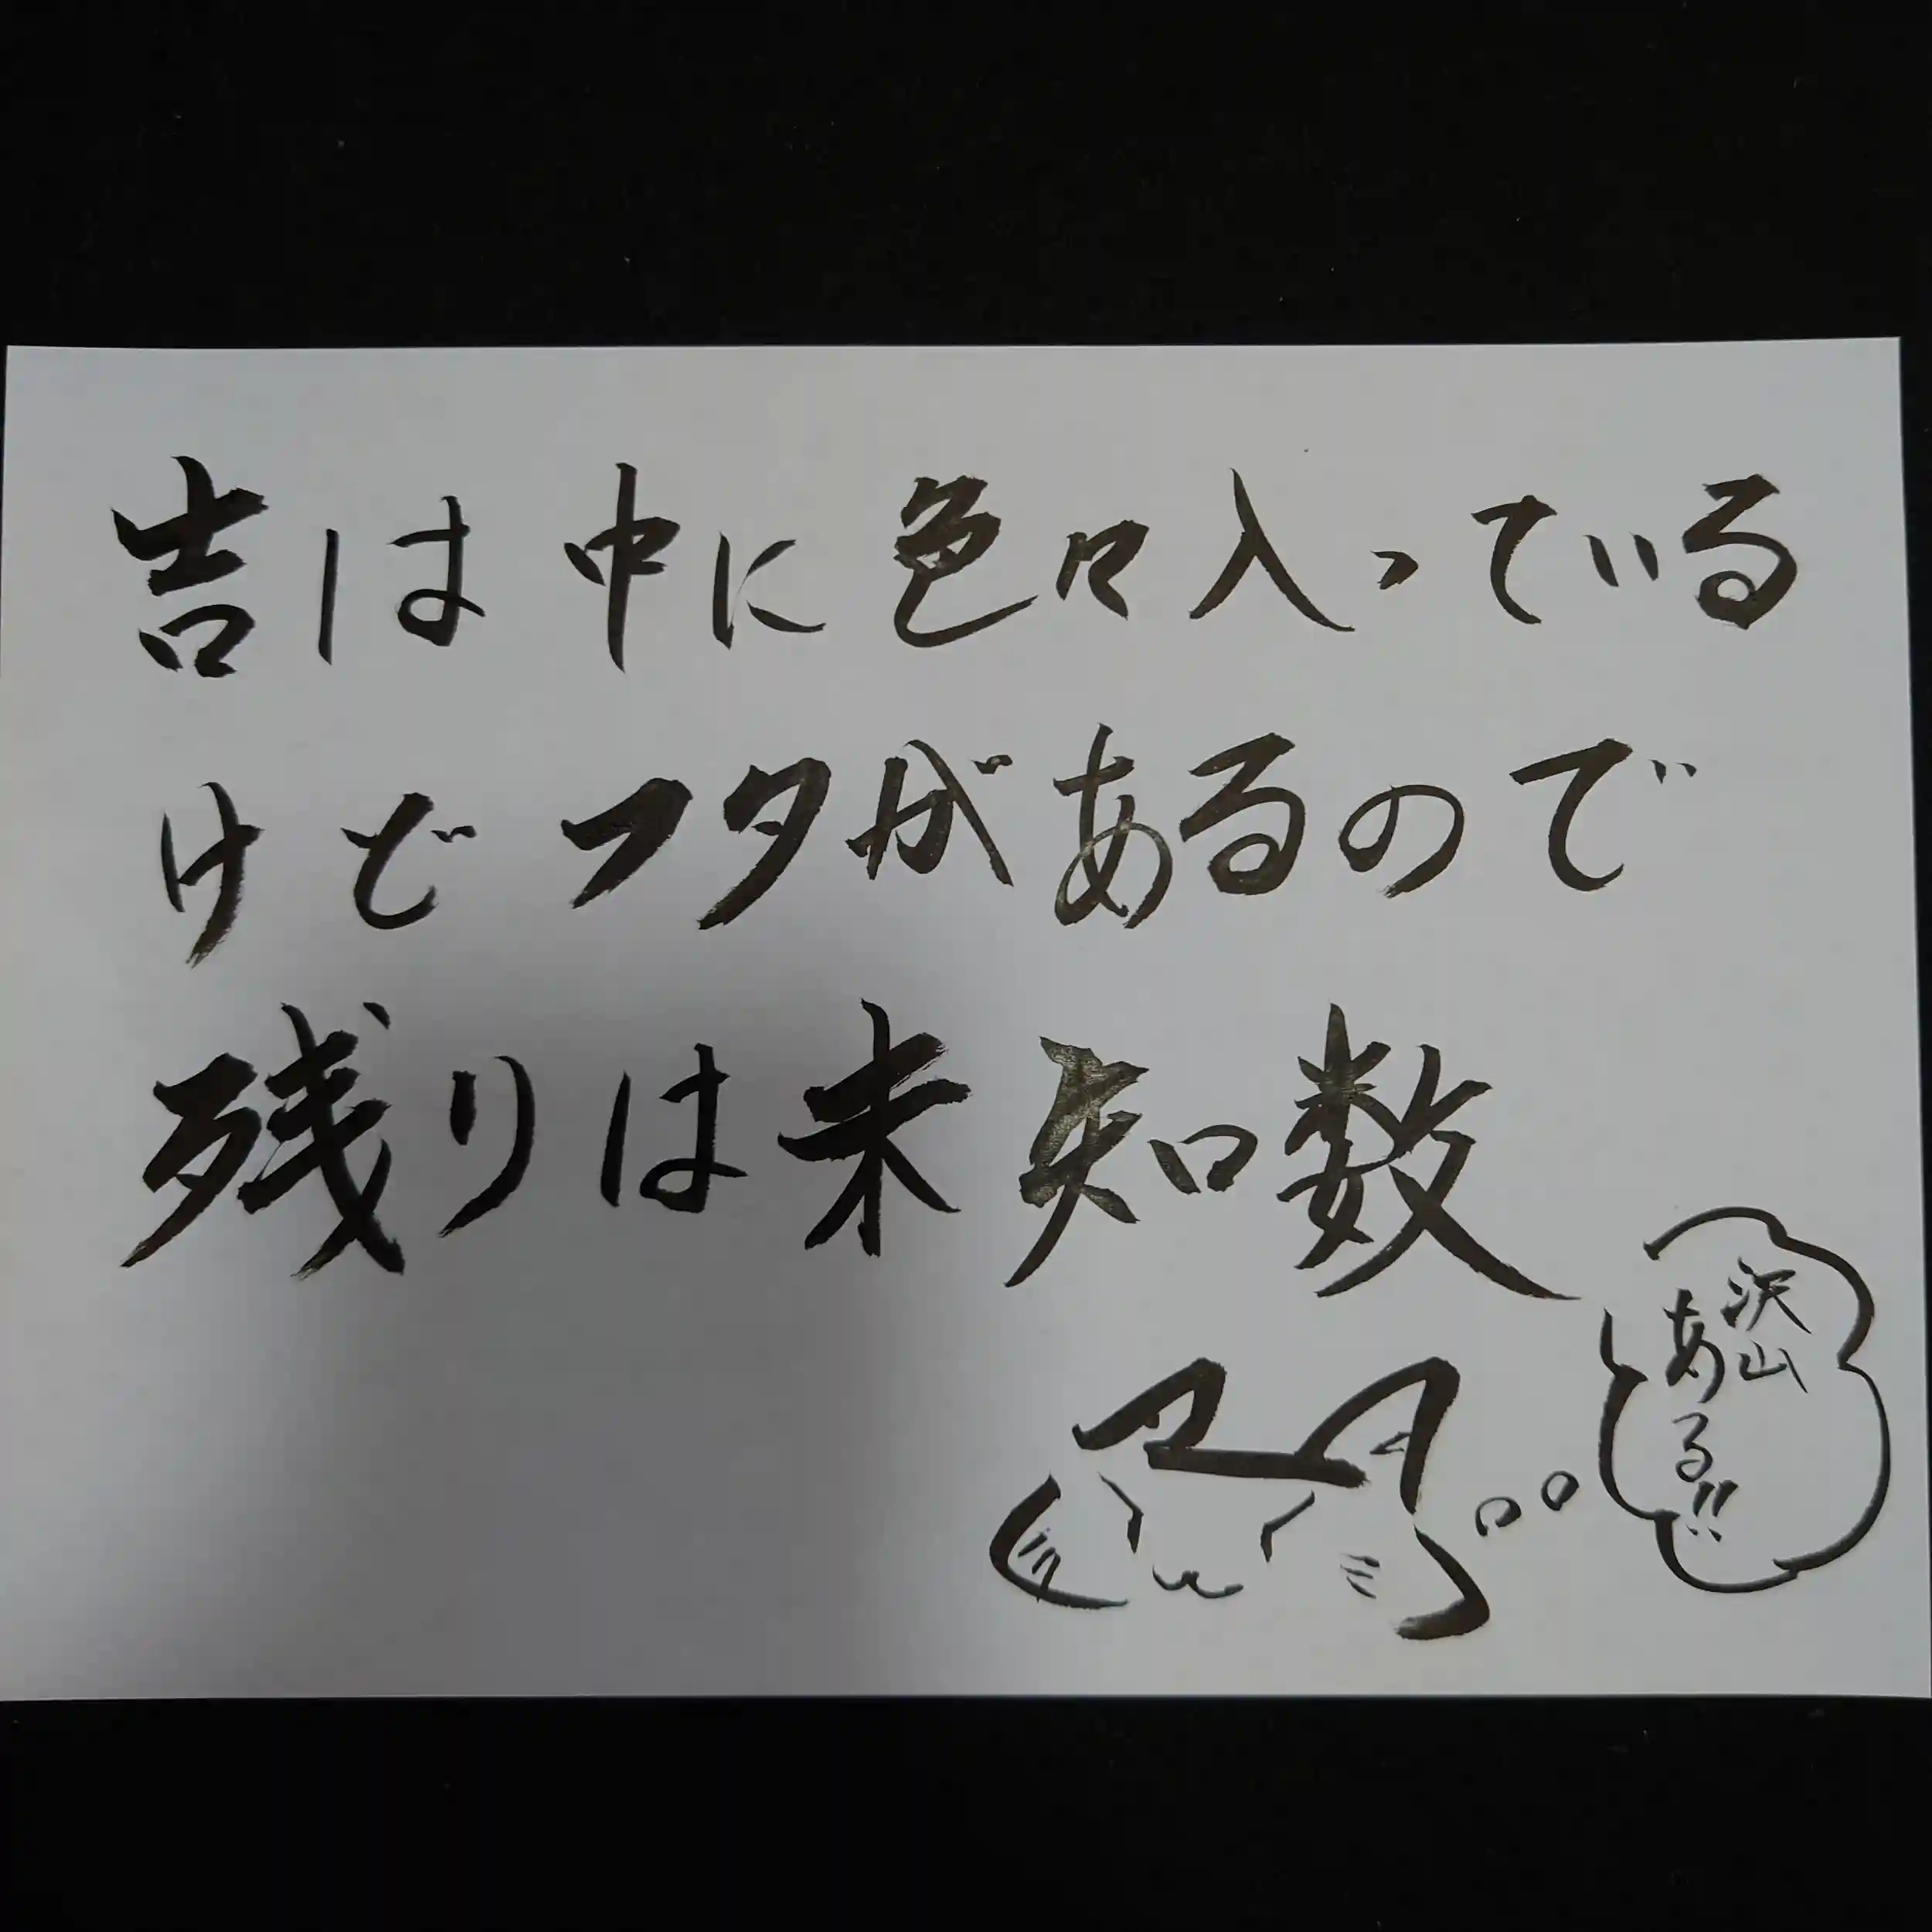 吉は中に色々入っている
けどフタがあるので
残りは未知数
沢山
ある!!